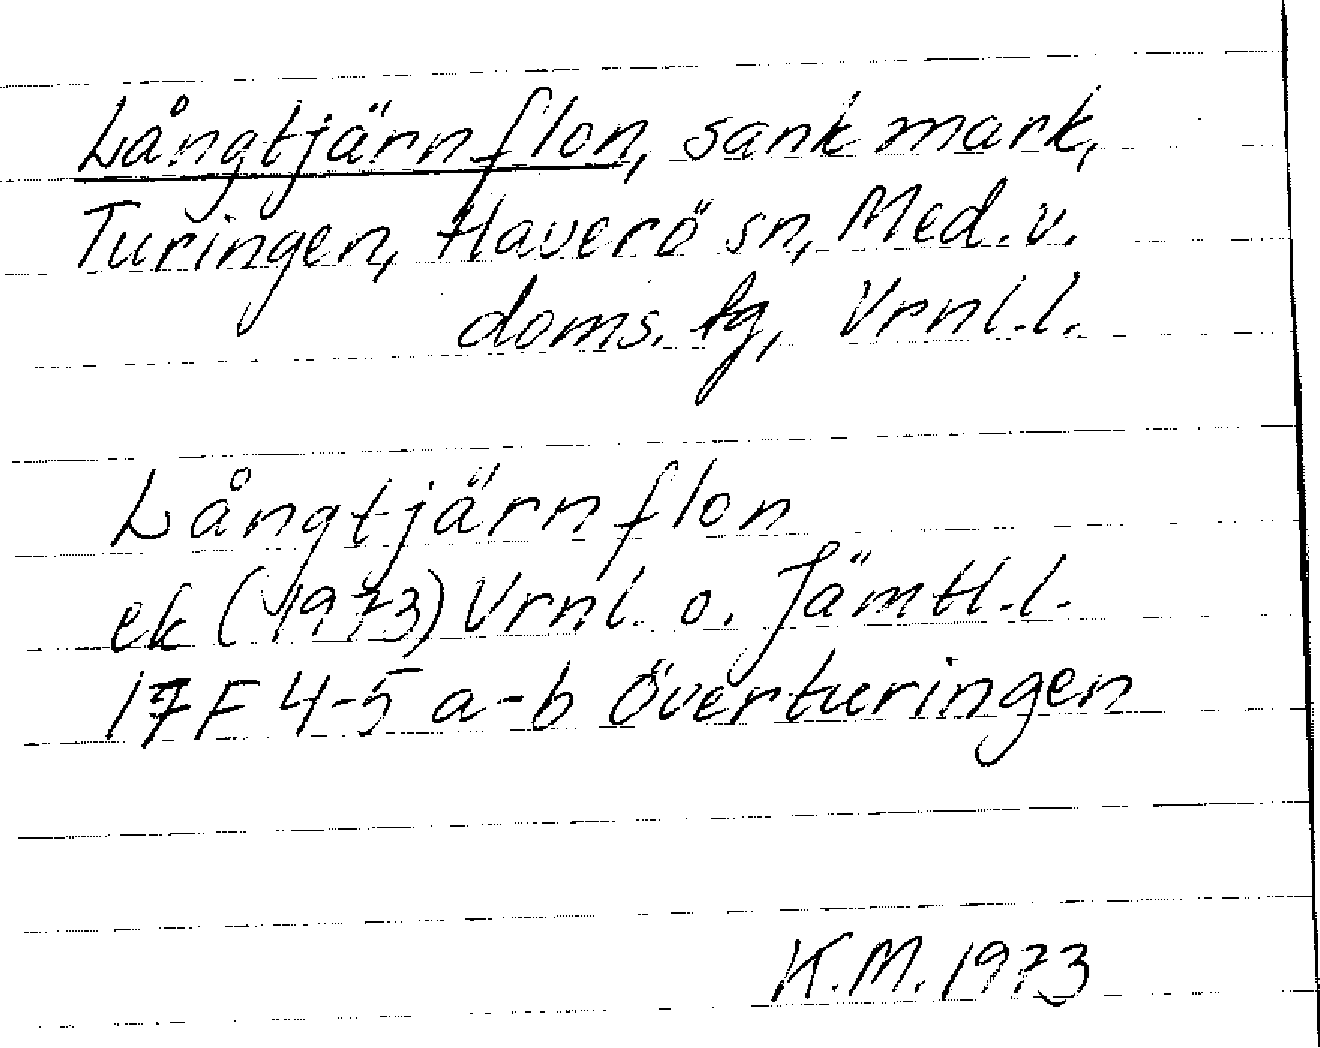 Långtjärnflon, sank mark,
Turingen, Haverö sn, Med. v.
doms. tg, Vrnl. l.
Långtjärnflon
ek (1973) Vrnl. o. Jämtl. l.
17F 4-5 a-b Överturingen
K.M. 1973